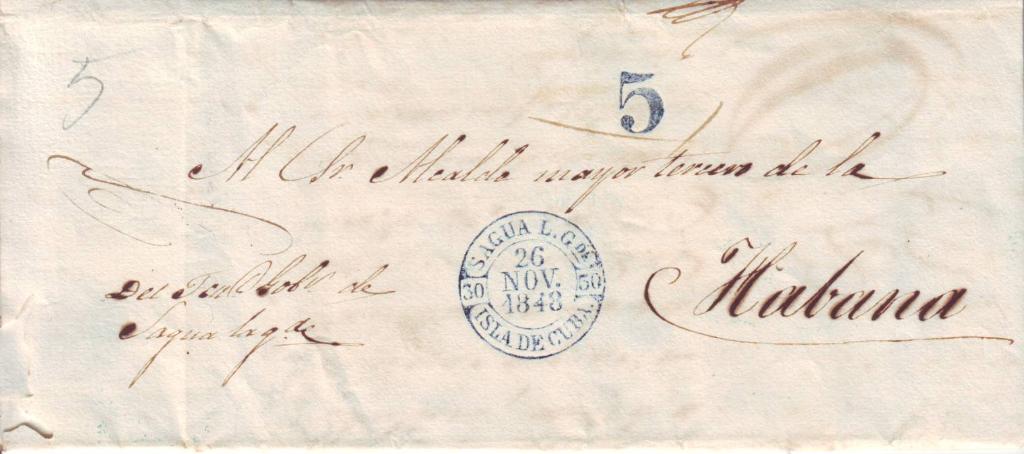 5
5
Al Sr. Alcalde mayor tercero de la
Habana
SAGUA L.G.DE
30
26
NOV.
1848
30
ISLA DE CUBA
Del Ten. Gobr. de
Sagua la g.de